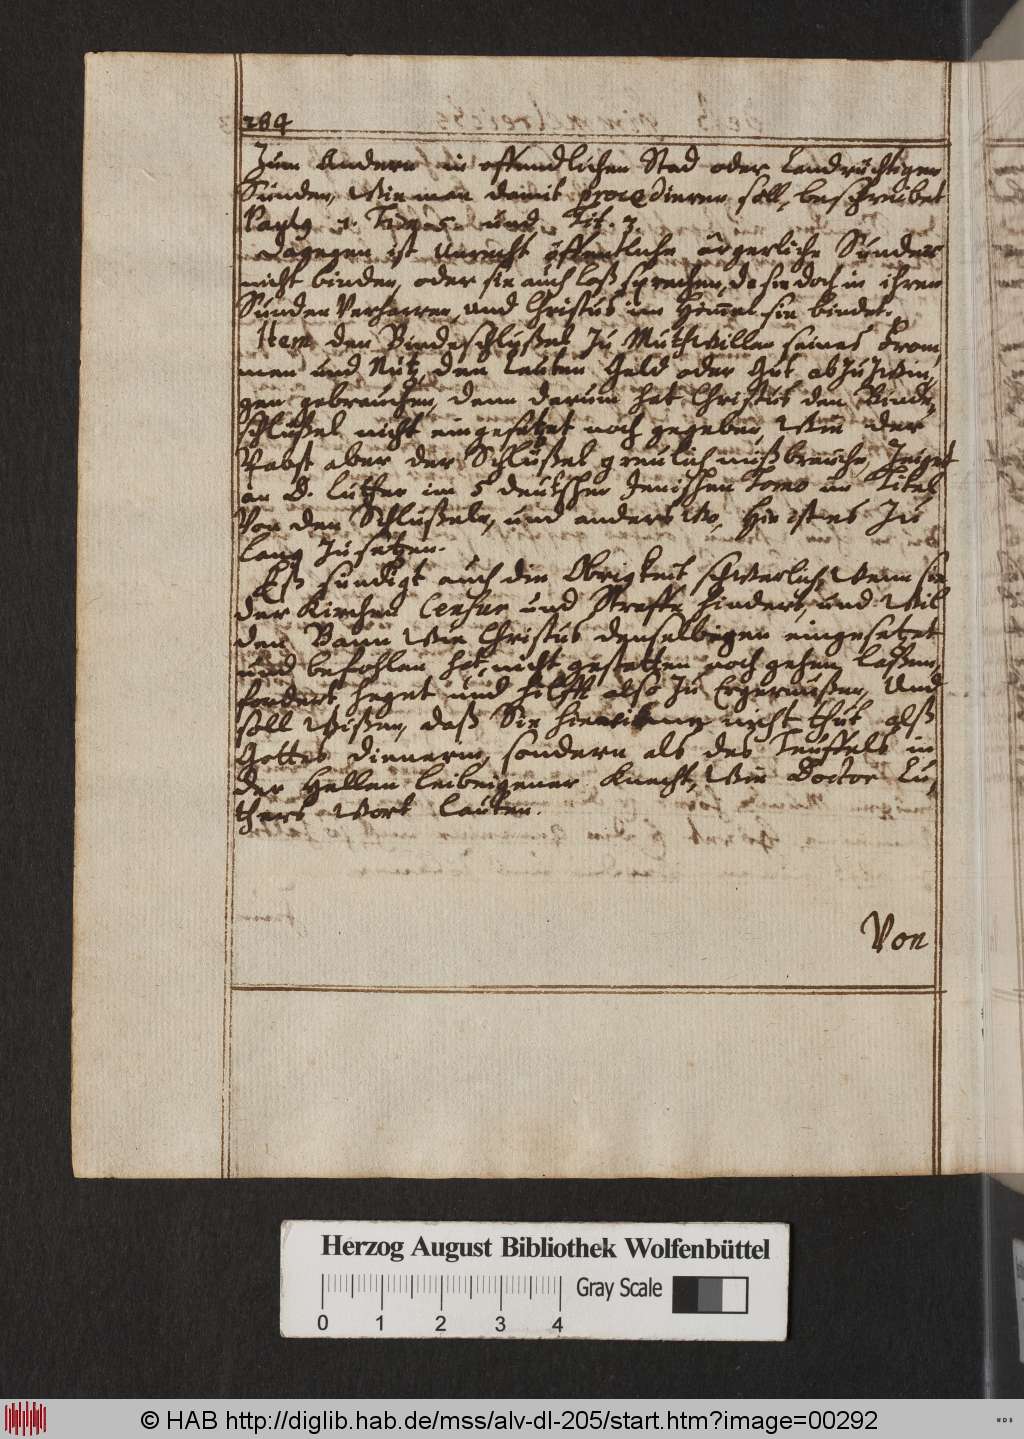 284
Zum Andern in offendlichen Stad oder Landrüchtigen
Sünden, Wie man damit procedieren soll, beschreibet
Paulg 1. Tim. 5. und Tit. 3.
Dagegen ist Unrecht öffentliche ärgerliche Sünder
nicht binden, oder sie auch loß sprechen, da sie doch in ihren
Sünden Verharren, und Christus im Himmel sie bindet.
Item den Bindeschlüßel zu Muthwillen seines From
men und Nutz, den Leuten Geld oder Gut abzuzwin,
gen gebrauchen, denn darum hat Christus den Binde,
schlüßel nicht eingesetzet noch gegeben, Wie der
Pabst aber der Schlüßel greulich mißbrauche, Zeiget
an D. Luther im 5 deutschen Jenischen Tomo im Titel
Von den Schlüßeln, und anders wo, hie ist es zu
lang zu setzen.
Eß sündigt auch die Obrigkeit schwerlich, Wenn sie
der Kirchen Censur und Straffe hindert, und Will
den Bann Wie Christus denselbigen eingesetzet
und befohlen hat, nicht gestatten noch gehen laßen,
fordert heget und hilfft also zu Ergernüßen, Und
soll Wißen, daß Sie hierinnen nicht thut alß
Gottes dienerin, sondern als des Teuffels in
der Hellen leibeigener Knecht, Wie Doctor Lu,
thers Wort lauten.
Von
Herzog August Bibliothek Wolfenbüttel
Gray Scale
0 1 2 3 4
© HAB http://diglib.hab.de/mss/alv-dl-205/start.htm?image=00292